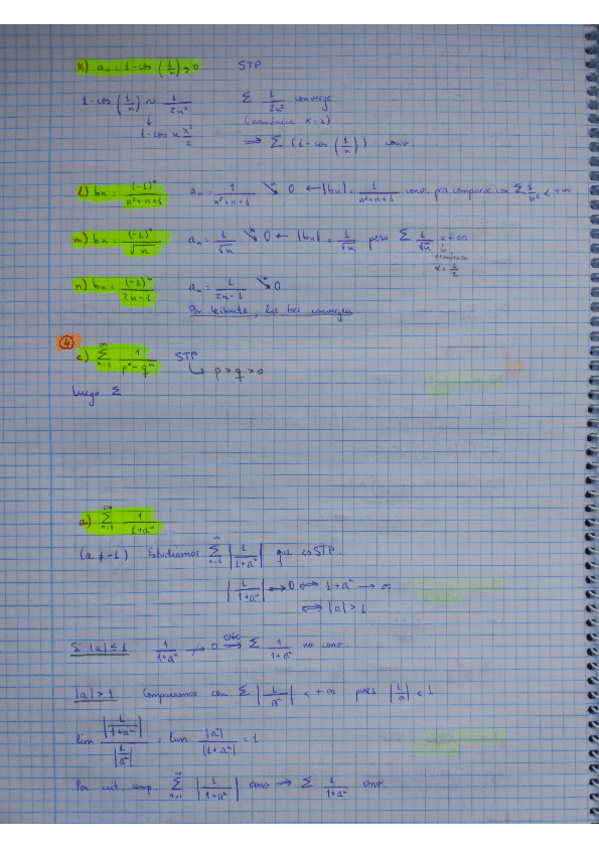 k) aₙ = 1-cos (1/n) ≥ 0 STP
1-cos (1/n) ~ 1/2n² Σ 1/2n² converge
↓ (armónica α=2)
1-cos x ~ x²/2 ⟹ Σ (1-cos (1/n)) conv.
l) bn = (-1)ⁿ/(n²+n+1) aₙ = 1/(n²+n+1) ↘ 0 ← |bn| = 1/(n²+n+1) conv. por comparac con Σ 1/n² < +∞
m) bn = (-1)ⁿ/√n aₙ = 1/√n ↘ 0 ← |bn| = 1/√n pero Σ 1/√n = +∞
↓
armónica
α = 1/2
n) bn = (-1)ⁿ/(2n-1) aₙ = 1/(2n-1) ↘ 0
Por Leibnitz, los tres convergen
④
c) Σ_{n=1}^{∞} 1/(pⁿ-qⁿ) STP
↳ p>q>0
Luego Σ
a) Σ_{n=1}^{∞} 1/(1+aⁿ)
(a ≠ -1) Estudiamos Σ_{n=1}^{∞} |1/(1+aⁿ)| que es STP.
|1/(1+aⁿ)| → 0 ⟺ 1+aⁿ → ∞
⟺ |a|>1
Si |a|≤1 1/(1+aⁿ) ↛ 0 ⟹ Σ 1/(1+aⁿ) no conv.
|a|>1 Comparamos con Σ |1/aⁿ| < +∞ pues |1/a| < 1
lim |1/(1+aⁿ)| / |1/aⁿ| = lim |aⁿ|/|1+aⁿ| = 1
Por crit. comp. Σ_{n=1}^{∞} |1/(1+aⁿ)| conv ⟹ Σ 1/(1+aⁿ) conv.